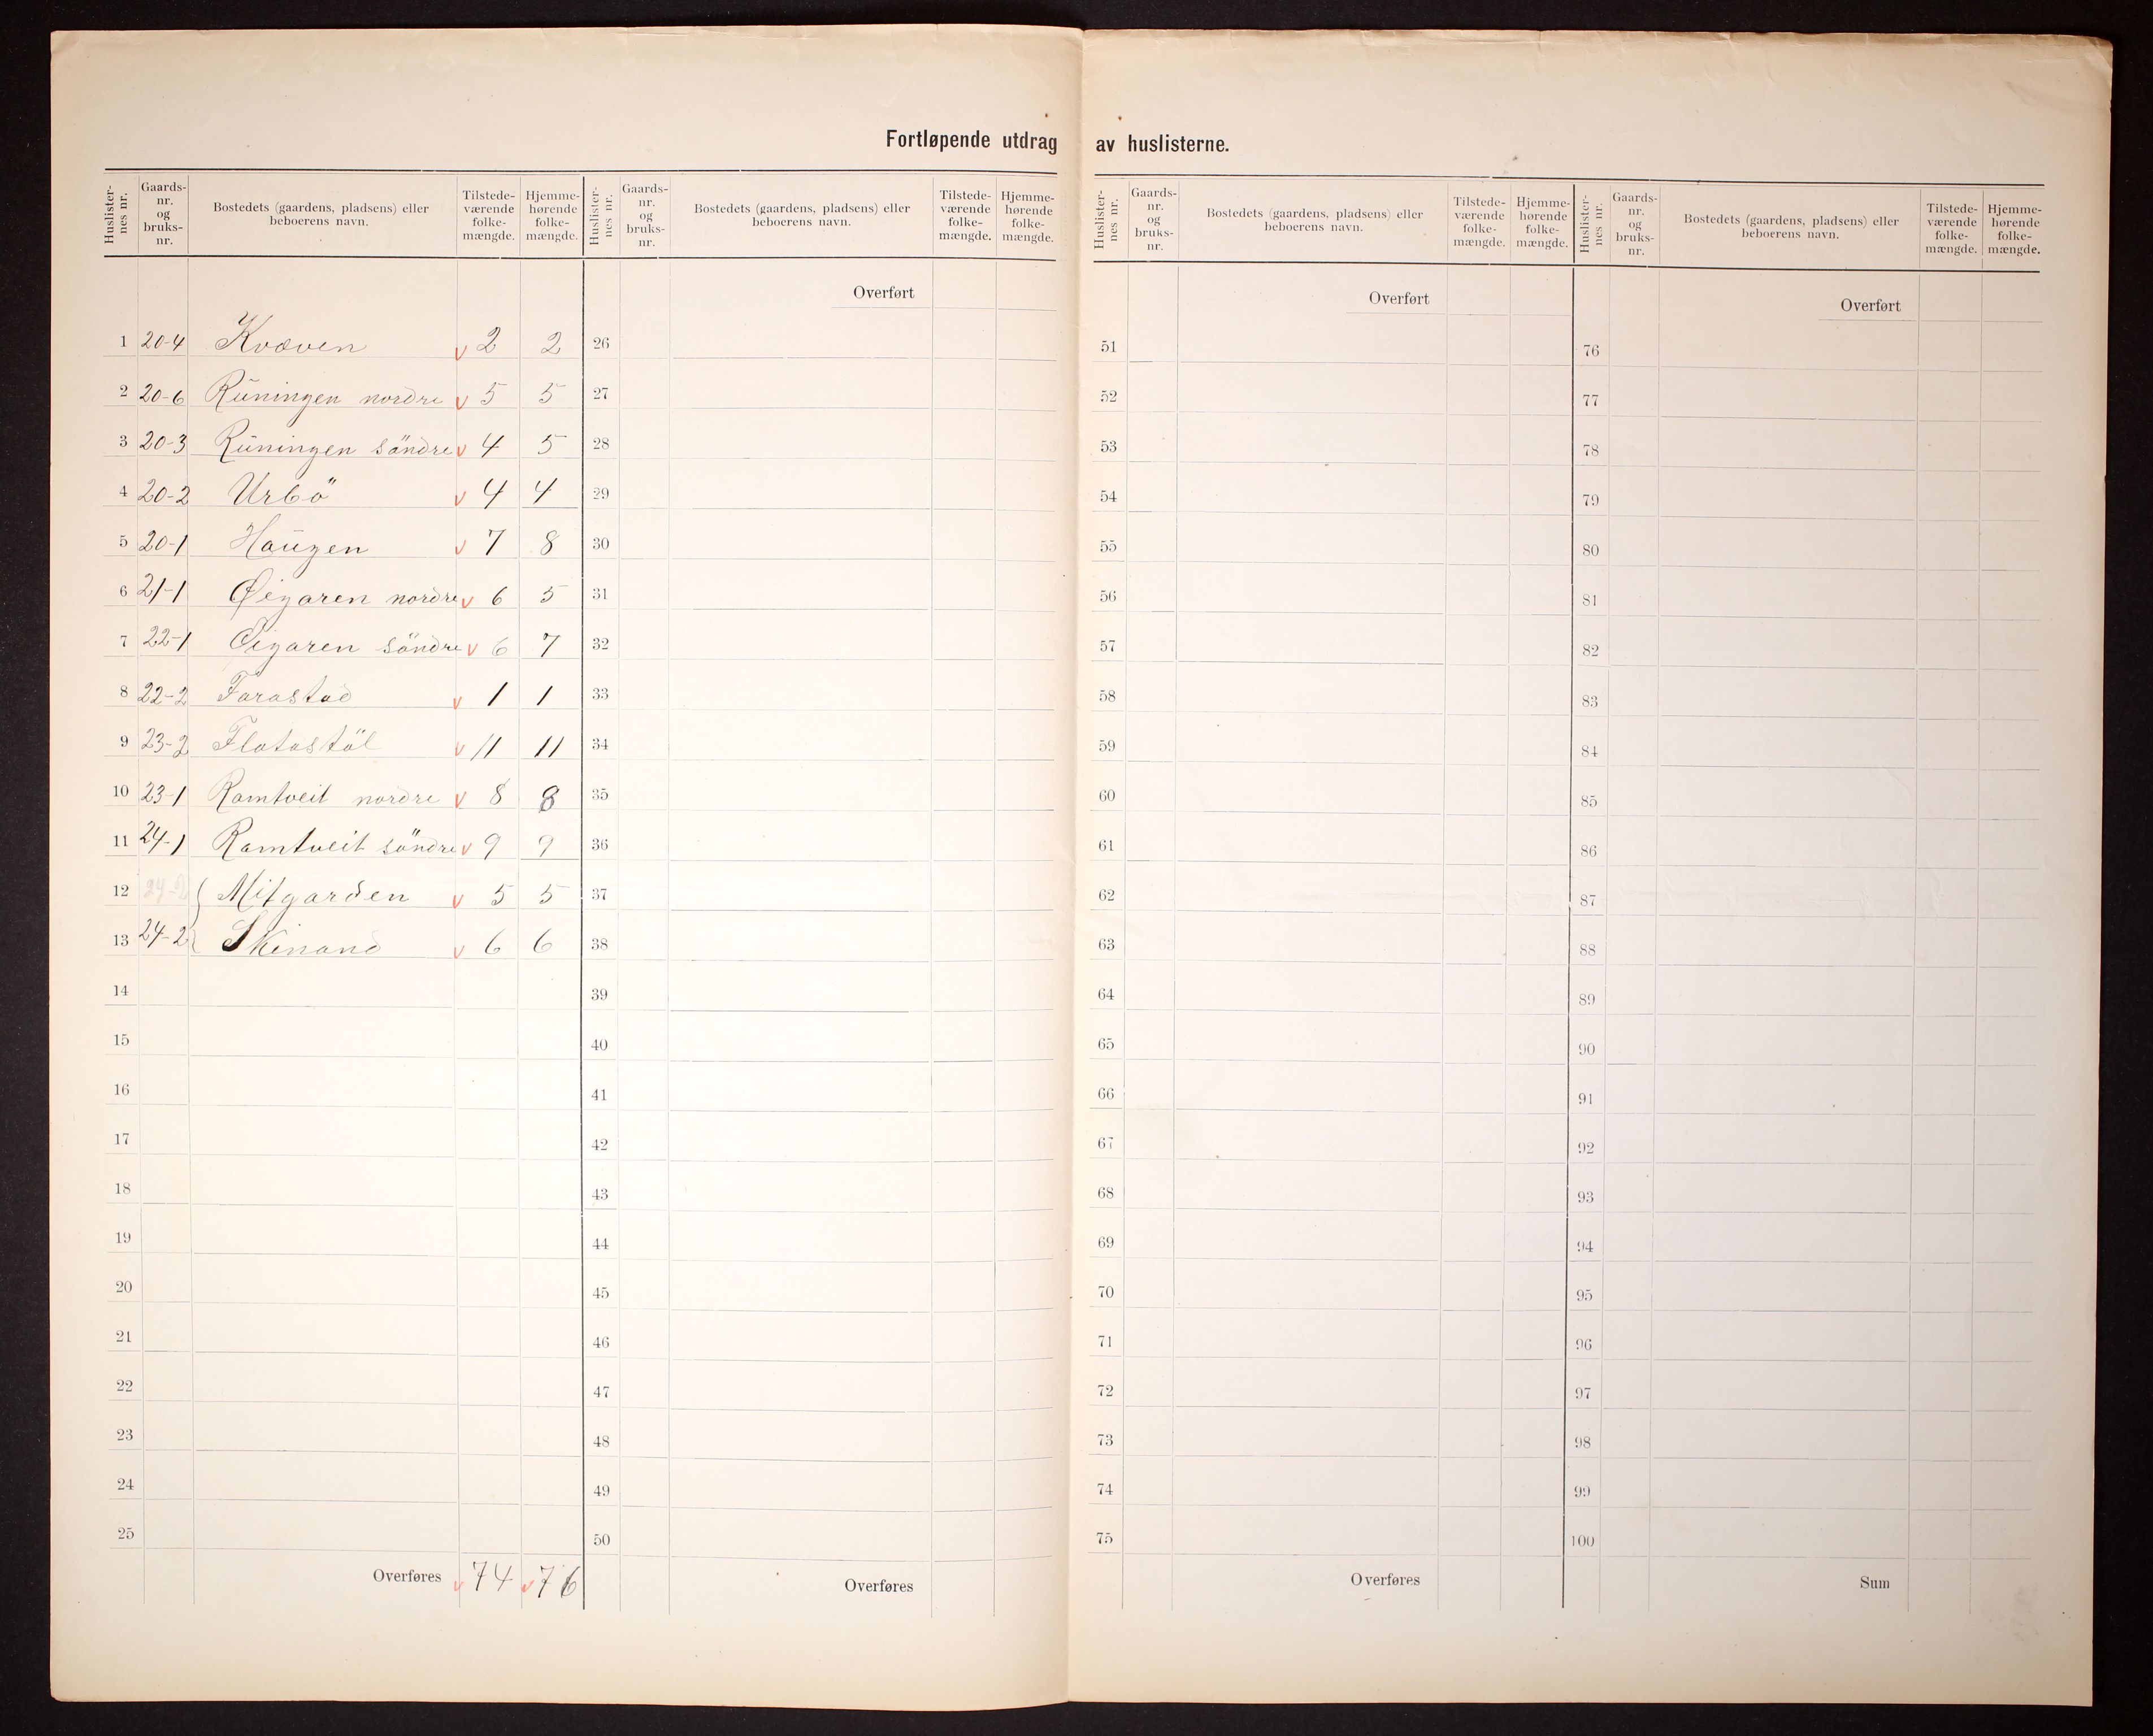 Fortløpende utdrag av huslisterne.
Huslisternes nr. Gaards-nr. og bruks-nr. Bostedets (gaardens, pladsens) eller beboerens navn. Tilstede-værende folke-mængde. Hjemme-hørende folke-mængde.
1 20-4 Kvæven v 2 2
2 20-6 Rüningen nordre v 5 5
3 20-3 Rüningen söndre v 4 5
4 20-2 Urbö v 4 4
5 20-1 Haugen v 7 8
6 21-1 Øigaren nordre v 6 5
7 22-1 Øigaren söndre v 6 7
8 22-2 Farastad v 1 1
9 23-2 Flatastöl v 11 11
10 23-1 Ramtveit nordre v 8 8
11 24-1 Ramtveit söndre v 9 9
12 24-2 Mitgarden v 5 5
13 24-2 Skinand v 6 6
14
15
16
17
18
19
20
21
22
23
24
25
Overføres v 74 v 76
Huslisternes nr. Gaards-nr. og bruks-nr. Bostedets (gaardens, pladsens) eller beboerens navn. Tilstede-værende folke-mængde. Hjemme-hørende folke-mængde.
Overført
26
27
28
29
30
31
32
33
34
35
36
37
38
39
40
41
42
43
44
45
46
47
48
49
50
Overføres
Huslisternes nr. Gaards-nr. og bruks-nr. Bostedets (gaardens, pladsens) eller beboerens navn. Tilstede-værende folke-mængde. Hjemme-hørende folke-mængde.
Overført
51
52
53
54
55
56
57
58
59
60
61
62
63
64
65
66
67
68
69
70
71
72
73
74
75
Overføres
Huslisternes nr. Gaards-nr. og bruks-nr. Bostedets (gaardens, pladsens) eller beboerens navn. Tilstede-værende folke-mængde. Hjemme-hørende folke-mængde.
Overført
76
77
78
79
80
81
82
83
84
85
86
87
88
89
90
91
92
93
94
95
96
97
98
99
100
Sum